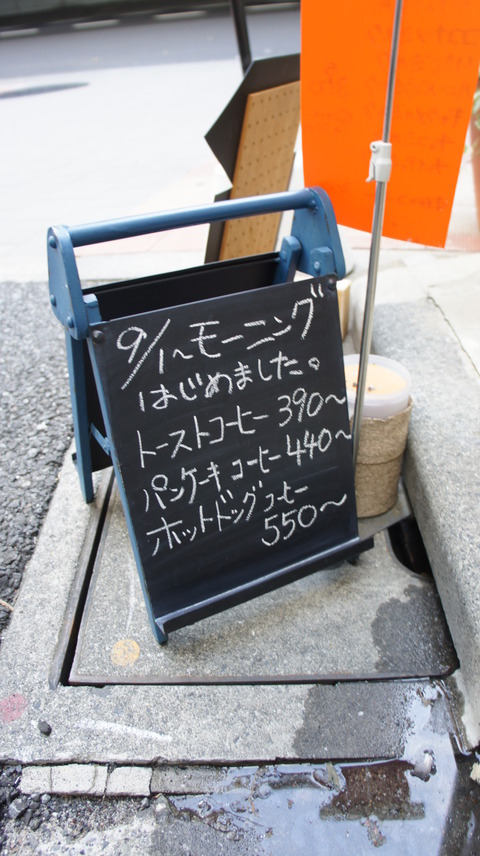 9/1~モーニング
はじめました。
トーストコーヒー 390~
パンケーキ コーヒー 440~
ホットドッグコーヒー
550~